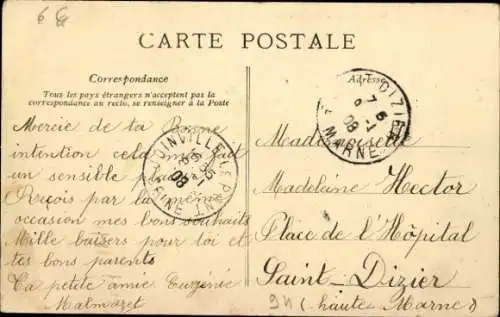 6 G
CARTE POSTALE
Correspondance
Tous les pays étrangers n'acceptent pas la
correspondance au recto, se renseigner à la Poste
Mercie de ta Bonne
intention cela me fait
un sensible plaisir
Reçois par la même
occasion mes bons souhaits
Mille baisers pour toi et
tes bons parents
Ta petite amie Eugénie
Malmazet
JOINVILLE-LE-P
SEINE
08
Adresse
ST DIZIER
Hte MARNE
7 5
6 -1
08
Mademoiselle
Madeleine Hector
Place de l'Hôpital
Saint-Dizier
(haute Marne)